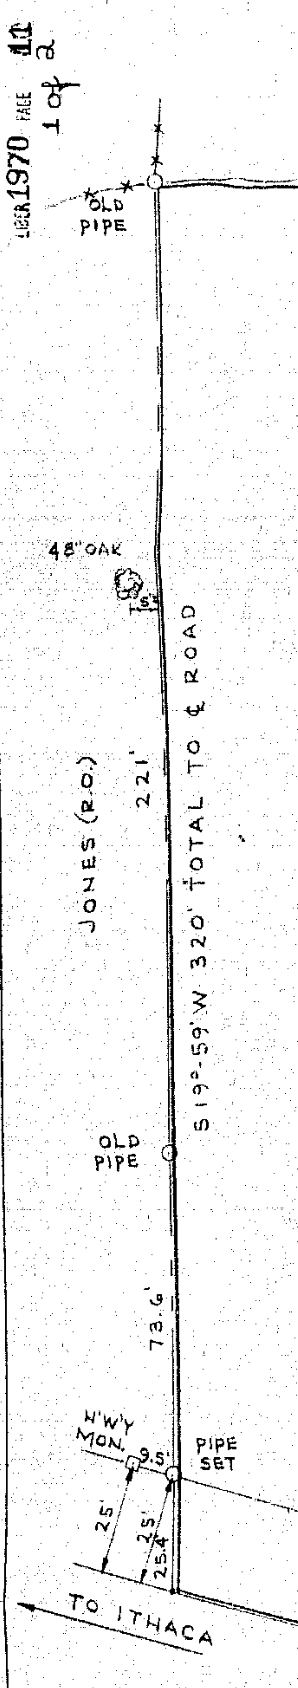 LIBER 1970 PAGE 11
1 of 2
OLD
PIPE
48" OAK
5.5
JONES (R.O.)
221'
S 19°-59' W 320' TOTAL TO ℄ ROAD
OLD
PIPE
73.6'
H'W'Y
MON.
9.5'
PIPE
SET
25'
25'
25.4
TO ITHACA